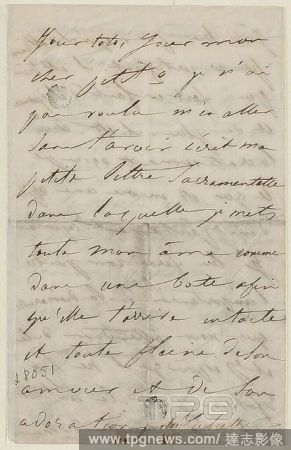 Jour toto, Jour mon
cher petit o je n'ai
pas voulu m'en aller
sans t'avoir écrit ma
petite lettre sacramentelle
dans laquelle je mets
toute mon âme comme
dans une boîte afin
qu'elle t'arrive intacte
et toute pleine de son
amour et de son
adoration
28051
TPG
www.tpgnews.com / 達志影像